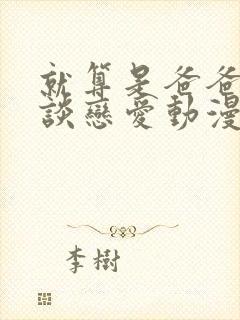 就算是爸爸
談戀愛動漫
李樹